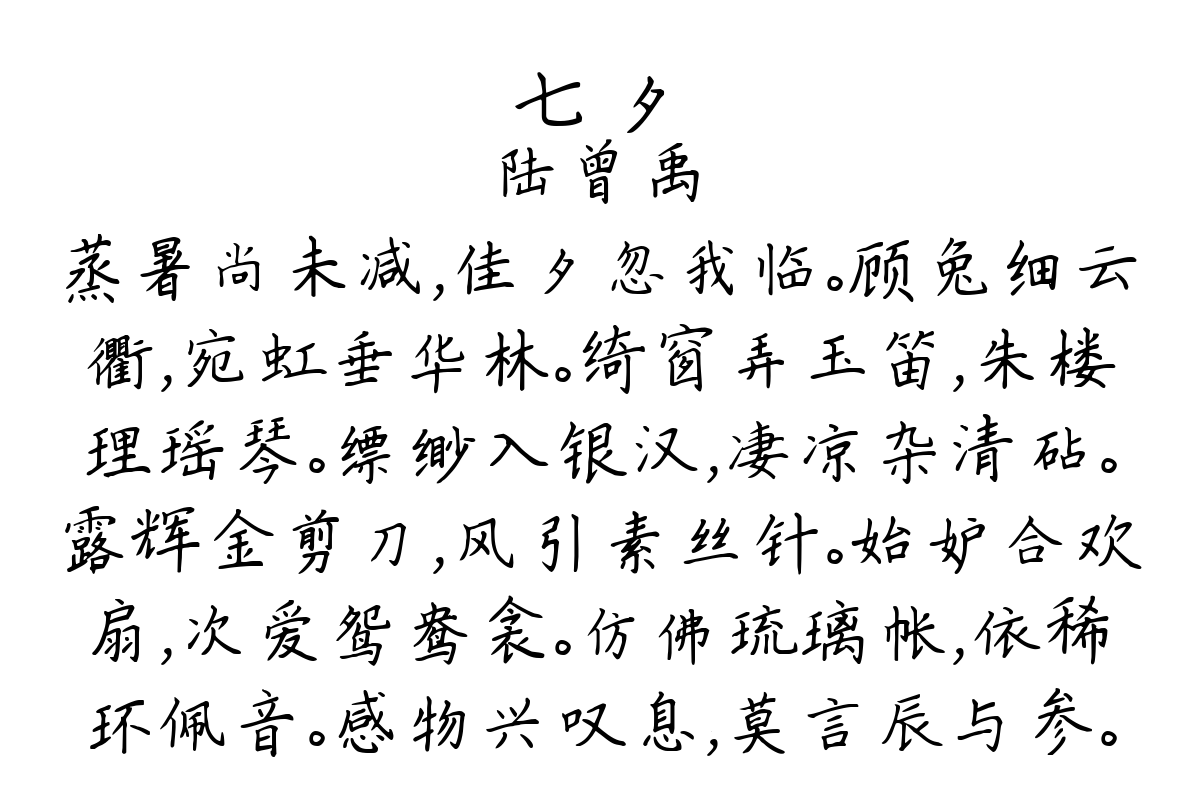 七夕
陆曾禹
蒸暑尚未减,佳夕忽我临。顾兔细云
衢,宛虹垂华林。绮窗弄玉笛,朱楼
理瑶琴。缥缈入银汉,凄凉杂清砧。
露辉金剪刀,风引素丝针。始妒合欢
扇,次爱鸳鸯衾。仿佛琉璃帐,依稀
环佩音。感物兴叹息,莫言辰与参。